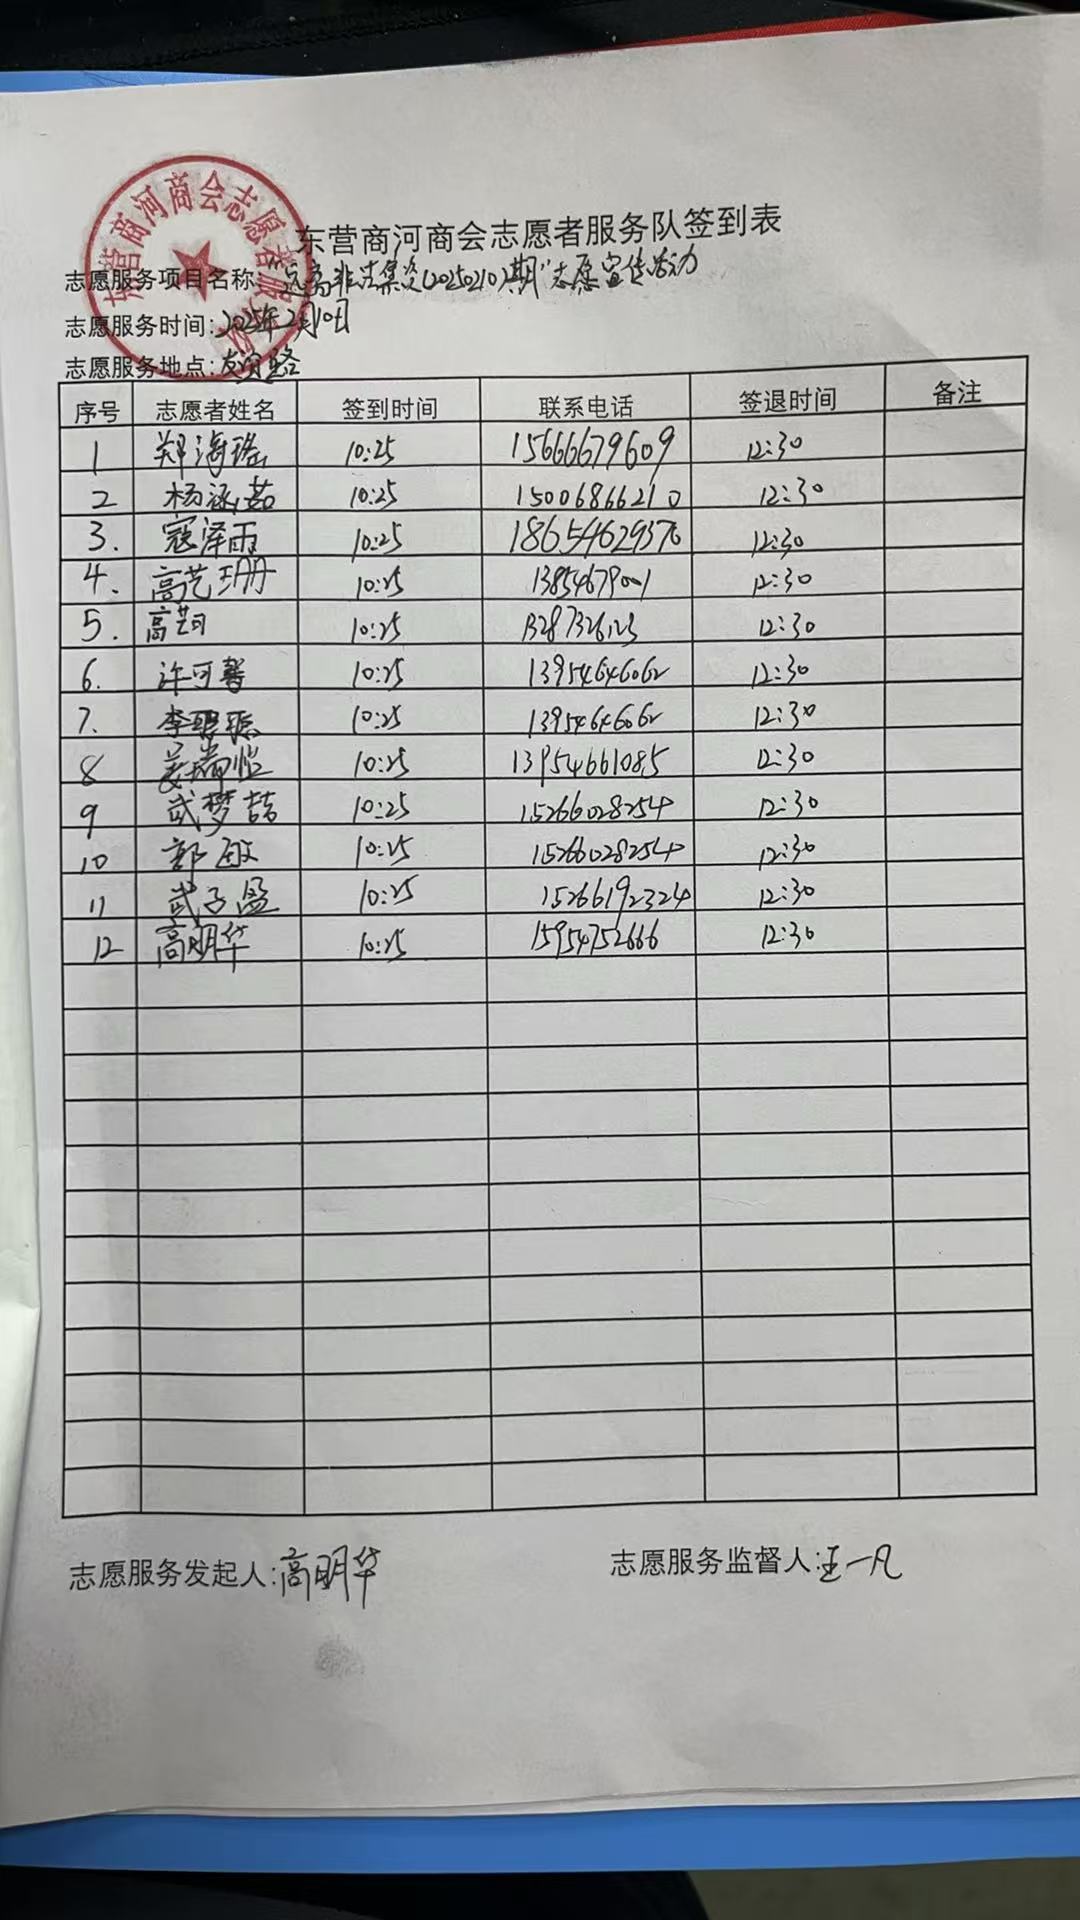 东营商河商会志愿者服务队
东营商河商会志愿者服务队签到表
志愿服务项目名称:远离非法集资(20250210)期"志愿宣传活动
志愿服务时间:2025年2月10日
志愿服务地点:友谊路
序号 志愿者姓名 签到时间 联系电话 签退时间 备注
1 郑海瑶 10:25 15666679609 12:30
2 杨涵茹 10:25 15006866210 12:30
3. 寇泽雨 10:25 18654629370 12:30
4. 高艺珊 10:25 13854679001 12:30
5. 高 10:25 12:30
6. 许可馨 10:25 13954646062 12:30
7. 李 10:25 13954646062 12:30
8 姜瑞恺 10:25 13954661085 12:30
9 武梦喆 10:25 15266028254 12:30
10 郭敏 10:25 15266028254 12:30
11 武子盈 10:25 15266192324 12:30
12 高明华 10:25 15954752666 12:30
志愿服务发起人:高明华 志愿服务监督人:王一凡